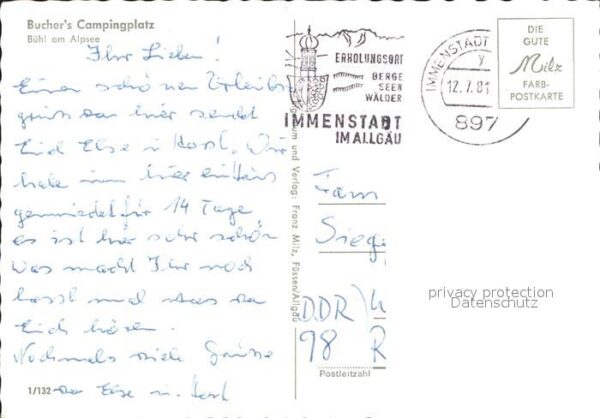 Bucher's Campingplatz
Bühl am Alpsee
Ihr Lieben!
Einen schönen Urlaubs
gruss von hier sendet
Euch Else u Horst. Wir
habe nun hier ein Haus
gemiedet für 14 Tage
es ist hier sehr schön
Was macht Ihr noch
lasst mal was von
Euch hören.
Nochmals viele Grüsse
von Else u. Horst
1/132
ERHOLUNGSORT
BERGE
SEEN
WÄLDER
IMMENSTADT
IM ALLGÄU
IMMENSTADT
y
12.7.81
897
DIE
GUTE
Milz
FARB-
POSTKARTE
und Verlag: Franz Milz, Füssen/Allgäu
Fam
Siege
DDR
98 R
Postleitzahl
privacy protection
Datenschutz